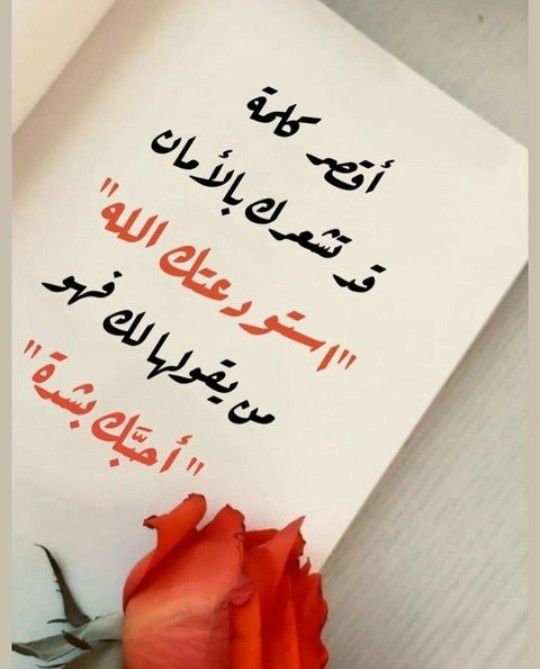 أقصر كلمة
قد تشعرك بالأمان
"استودعتك الله"
من يقولها لك فهو
"أحبَّك بشدة"